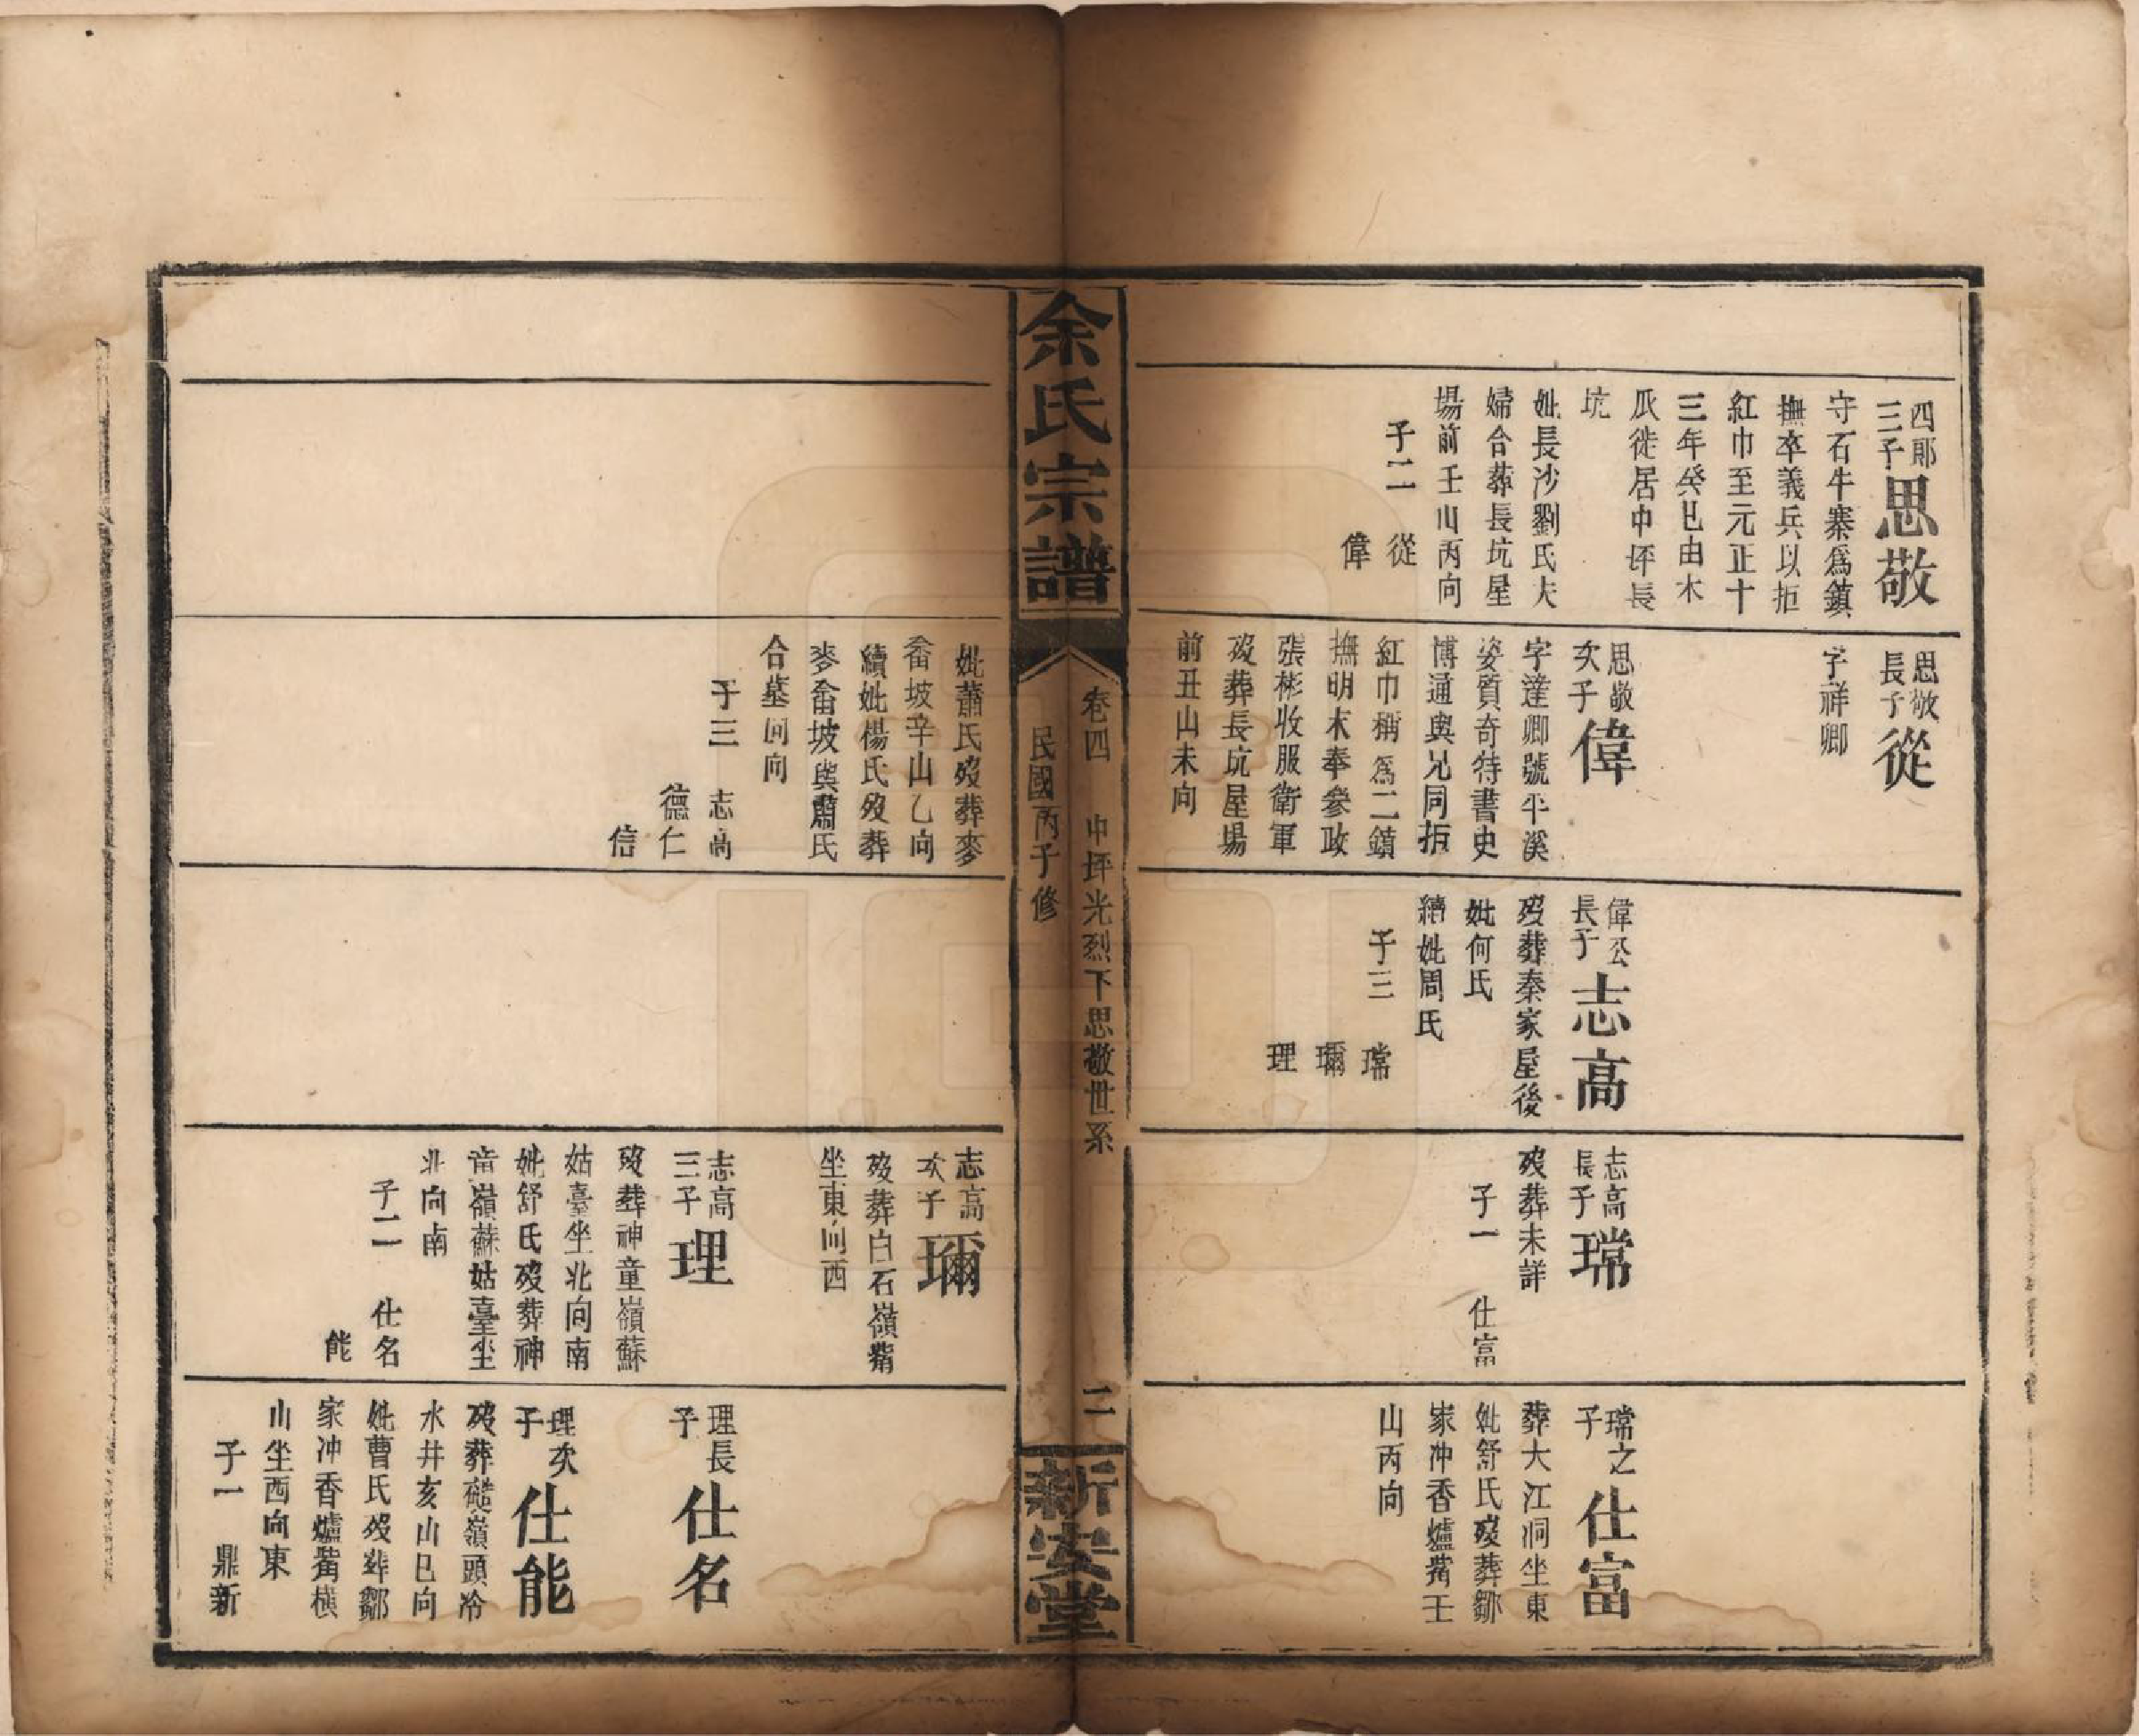 四郎
三子
思敬
守石牛寨為鎮
撫卒義兵以拒
紅巾至元正十
三年癸巳由木
瓜徙居中坪長
坑
妣長沙劉氏夫
婦合葬長坑屋
場前壬山丙向
子二 從
偉
思敬
長子
從
字祥卿
思敬
次子
偉
字達卿號平溪
姿質奇特書史
博通與兄同拒
紅巾稱為二鎮
撫明末奉參政
張彬收服衛軍
歿葬長坑屋場
前丑山未向
偉公
長子
志高
歿葬秦家屋後
妣何氏
續妣周氏
子三 璫
瓓
理
志高
長子
璫
歿葬未詳
子一 仕富
璫之
子
仕富
葬大江洞坐東
妣舒氏歿葬鄒
家冲香爐觜壬
山丙向
余氏宗譜
卷四 中坪光烈下思敬世系 二
民國丙子修
新安堂
妣蕭氏歿葬麥
畬坡辛山乙向
續妣楊氏歿葬
麥畬坡與蕭氏
合墓同向
子三 志高
德仁
信
志高
次子
瓓
歿葬白石嶺觜
坐東向西
志高
三子
理
歿葬神童嶺蘇
姑臺坐北向南
妣舒氏歿葬神
童嶺蘇姑臺坐
北向南
子二 仕名
能
理長
子
仕名
理次
子
仕能
歿葬礎嶺頭冷
水井亥山巳向
妣曹氏歿葬鄒
家冲香爐觜橫
山坐西向東
子一 鼎新